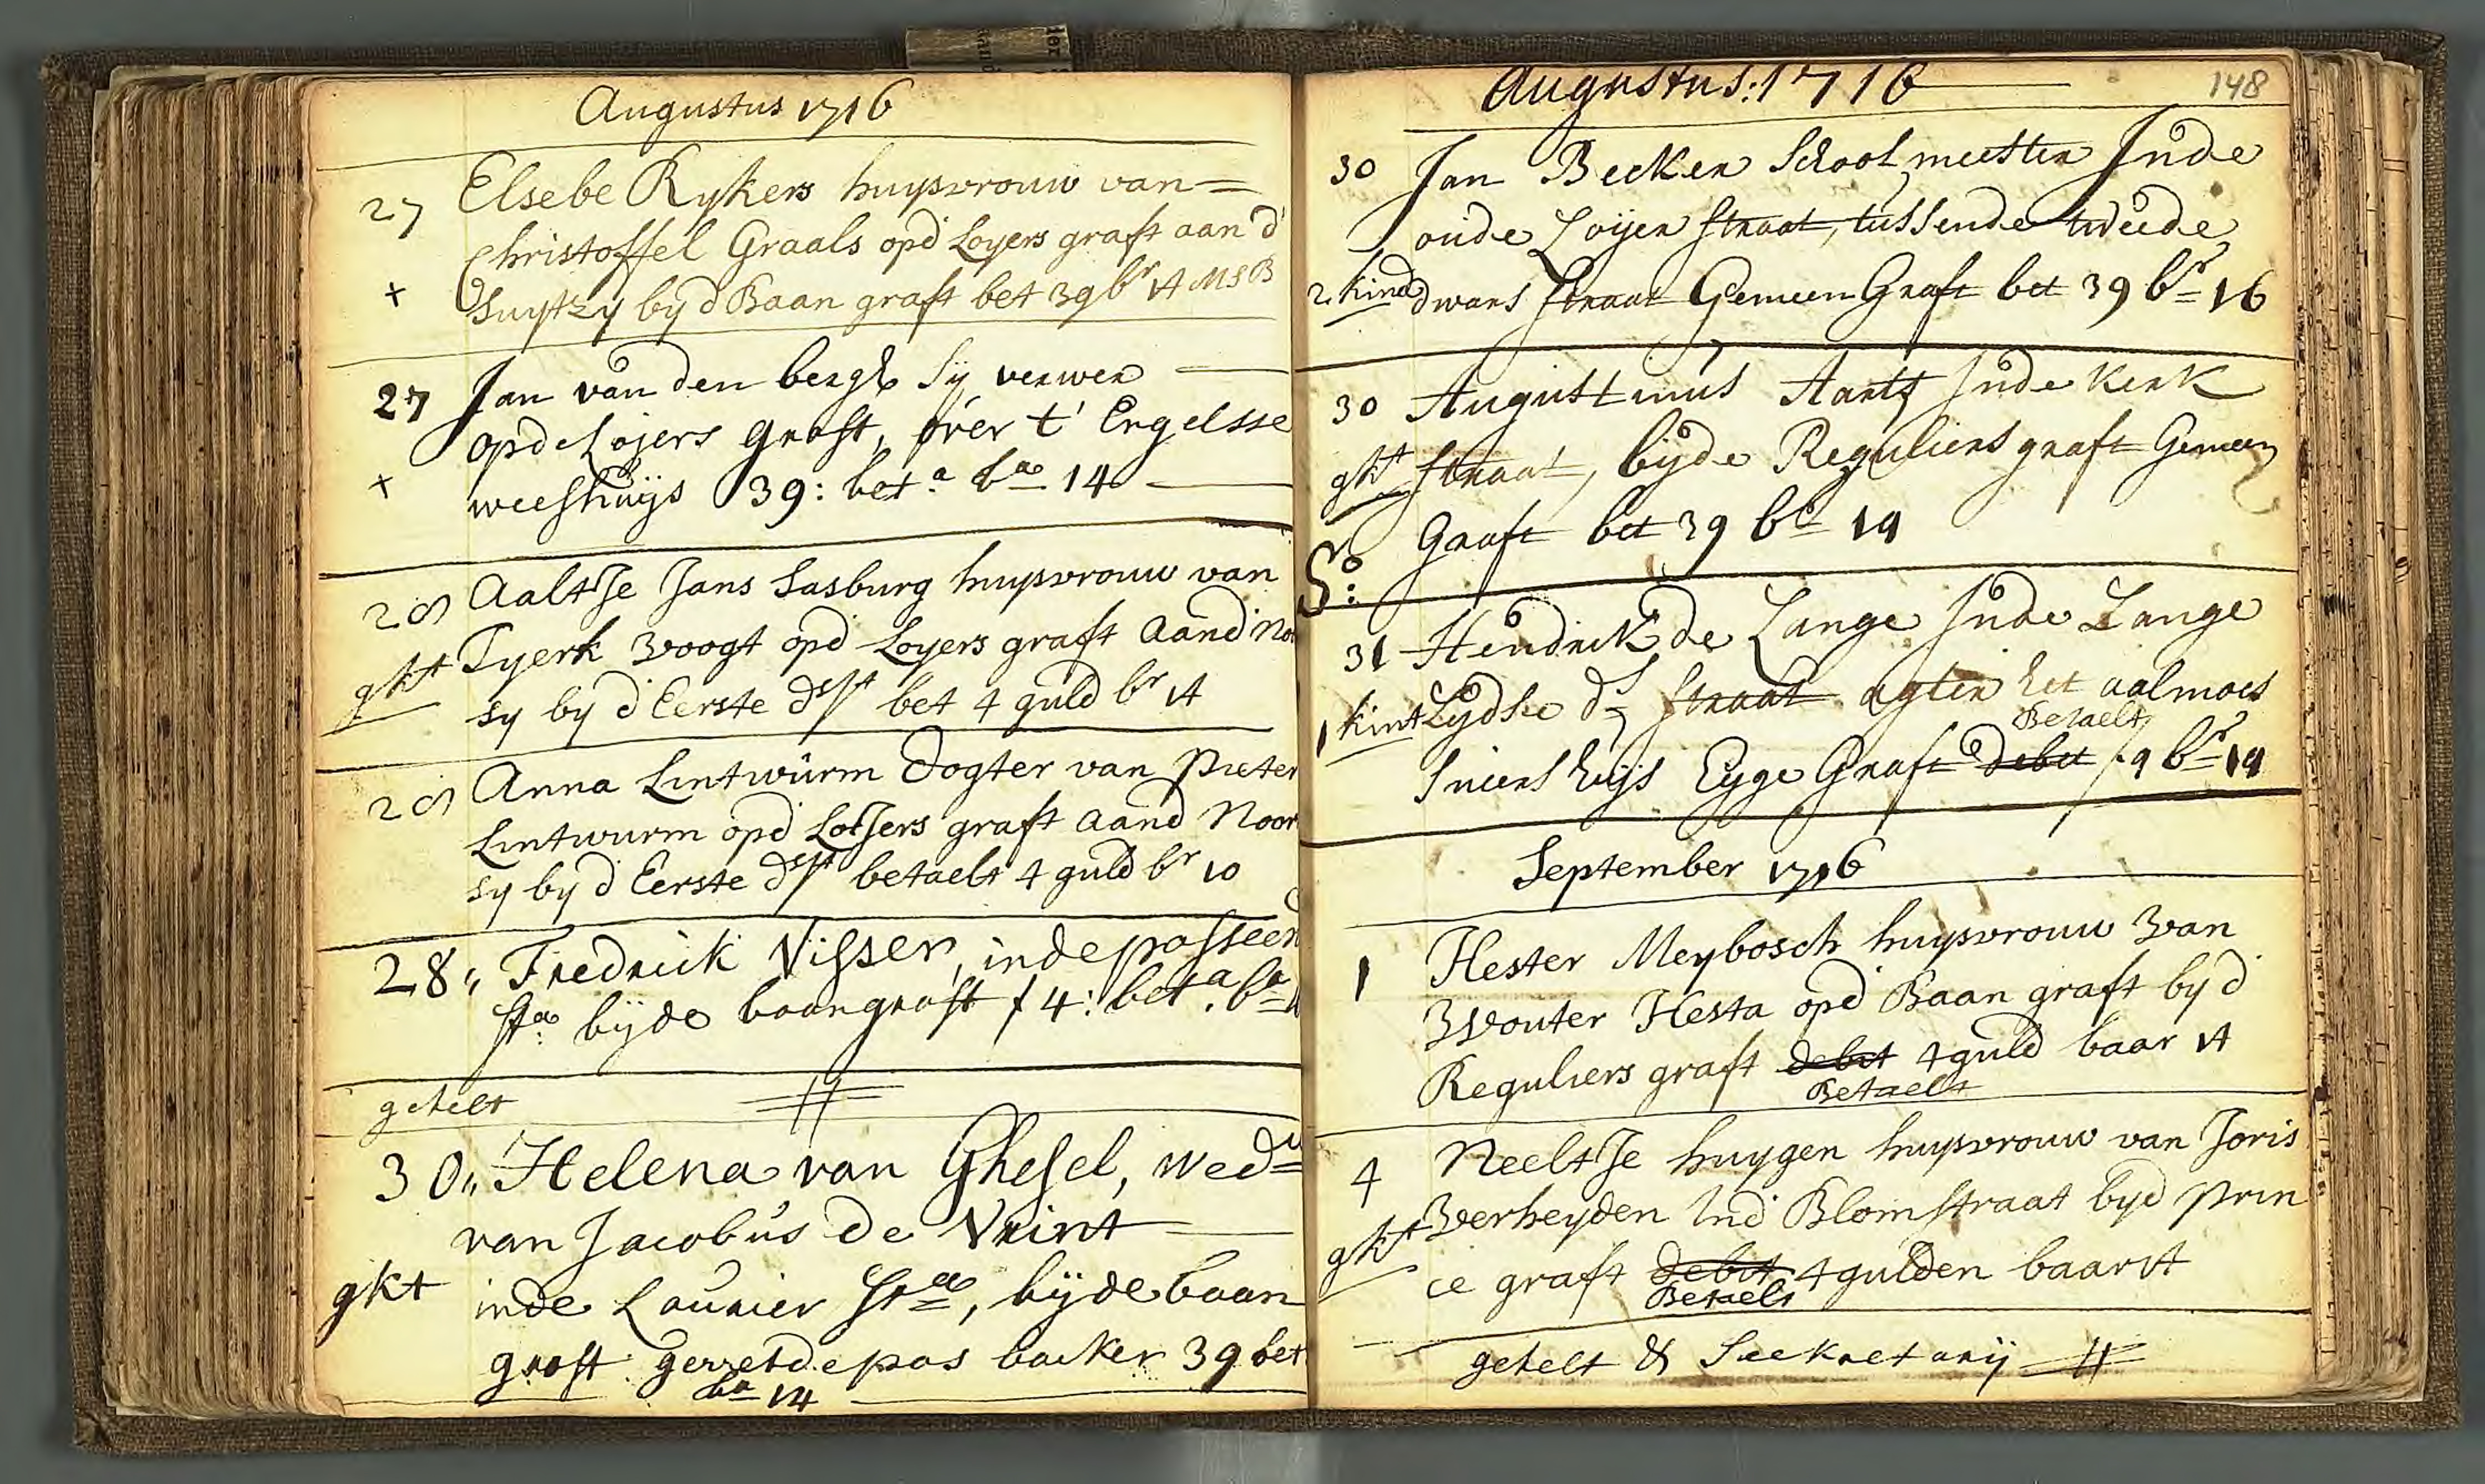 Augustus 1716
27 Elsebe Rykers huysvrouw van =
Christoffel Graals opd Loyers graft aan d
+ Suytzy by d Baan graft bet 39 br 14 MSB
27 Jan van den bergh sy verwer
opde Lojers graft, over t' Engelsse
+ weeshuijs 39: bet.a ba 14
28 Aaltje Jans Sasburg huysvrouw van
Tyerk Voogt opd Loyers graft aand No
gkt sy by d Eerste dst bet 4 guld br 14
28 Anna Lintwurm dogter van Pieter
Lintwurm opd Lojers graft aand Noor
sy by d Eerste dst betaelt 4 guld br 10
28,, Fredrick Visser, inde passeerd
sta: bijde baangraft f 4: bet.a ba
getelt
30,, Helena van Ghesel, wedu
van Jacobus de Vrint
gkt inde Laurier stra, bijde baan
graft gerretdepas backer 39 bet
ba 14
Augustus: 1716
148
30 Jan Becker Schoolmeester Inde
oude Loijer straat, tussende tweede
2 kind dwars straat Gemeen Graft bet 39 br 16
30 Augustinus Aartz Inde Kerk
gkt straat, bijde Reguliers graft Gemeen
Graft bet 39 br 14
So:
31 Hendrik de Lange Inde Lange
1 kint Lydse ds straat agter het aalmoes
Betaelt
Sniers huijs Eyge Graft debet f 9 br 14
September 1716
1 Hester Meybosch huysvrouw van
Wouter Hesta opd Baan graft by d
Reguliers graft debet 4 guld baar 14
Betaelt
4 Neeltje huygen huysvrouw van Joris
Verheyden Ind Blomstraat byd Prin
gkt ce graft debet 4 gulden baar 14
Betaelt
getelt & Seekretarij